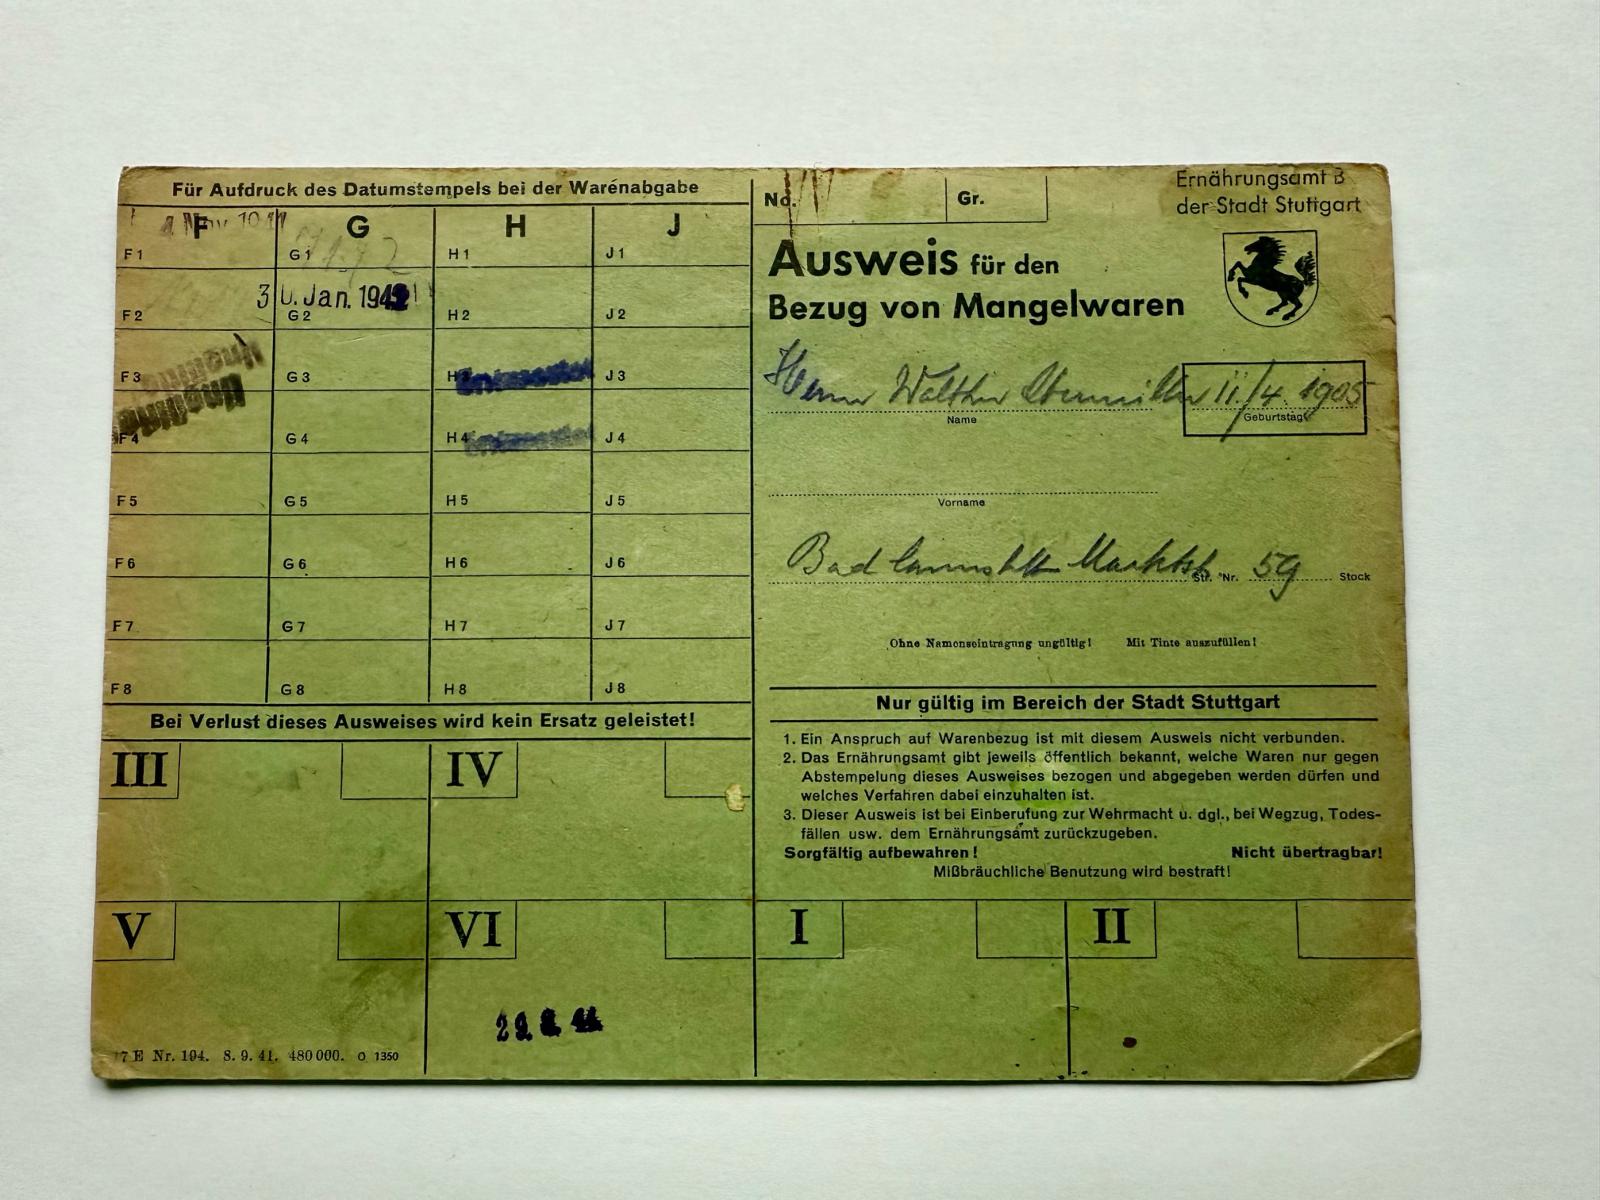 Für Aufdruck des Datumstempels bei der Warenabgabe
F G H J
4 Nov. 1941
F1 G1 H1 J1
30. Jan. 1942
F2 G2 H2 J2
Ungültig
F3 G3 H3 J3
Ungültig
F4 G4 H4 J4
F5 G5 H5 J5
F6 G6 H6 J6
F7 G7 H7 J7
F8 G8 H8 J8
Bei Verlust dieses Ausweises wird kein Ersatz geleistet!
III IV
V VI
7 E Nr. 194. 8. 9. 41. 480 000. O 1350
No. Gr.
Ernährungsamt B
der Stadt Stuttgart
Ausweis für den
Bezug von Mangelwaren
Herrn 11./4. 1905
Name Geburtstag
Vorname
Bad Cannstatt Marktstr. 59
Str. Nr. Stock
Ohne Namenseintragung ungültig! Mit Tinte auszufüllen!
Nur gültig im Bereich der Stadt Stuttgart
1. Ein Anspruch auf Warenbezug ist mit diesem Ausweis nicht verbunden.
2. Das Ernährungsamt gibt jeweils öffentlich bekannt, welche Waren nur gegen
Abstempelung dieses Ausweises bezogen und abgegeben werden dürfen und
welches Verfahren dabei einzuhalten ist.
3. Dieser Ausweis ist bei Einberufung zur Wehrmacht u. dgl., bei Wegzug, Todes-
fällen usw. dem Ernährungsamt zurückzugeben.
Sorgfältig aufbewahren! Nicht übertragbar!
Mißbräuchliche Benutzung wird bestraft!
I II